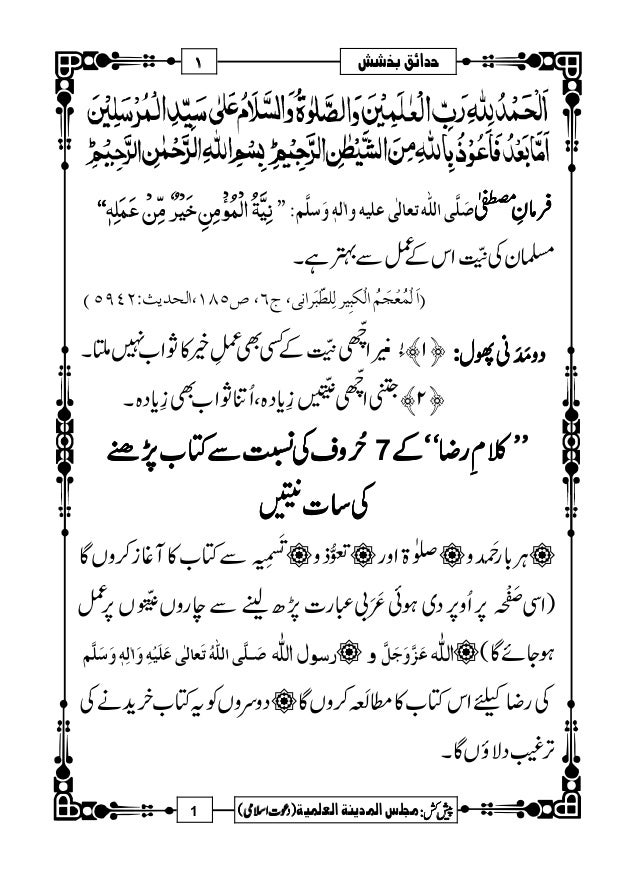 حدائق بخشش
۱
اَلْحَمْدُ لِلّٰهِ رَبِّ الْعٰلَمِیْنَ وَالصَّلٰوةُ وَالسَّلَامُ عَلٰی سَیِّدِ الْمُرْسَلِیْنَ
اَمَّا بَعْدُ فَاَعُوْذُ بِاللّٰهِ مِنَ الشَّیْطٰنِ الرَّجِیْمِ ؕ بِسْمِ اللّٰهِ الرَّحْمٰنِ الرَّحِیْمِ ؕ
فرمانِ مصطفٰی صَلَّی اللہ تعالٰی علیہ واٰلہٖ وَسلَّم: ”نِیَّةُ الْمُؤْمِنِ خَیْرٌ مِّنْ عَمَلِهٖ“
مسلمان کی نیّت اس کے عمل سے بہتر ہے۔
(اَلْمُعْجَمُ الْکبِیر لِلطَّبَرانی، ج۶، ص۱۸۵، الحدیث:۵۹۴۲)
دو مَدَنی پھول: ﴿۱﴾ بِغیر اچّھی نیّت کے کسی بھی عملِ خیر کا ثواب نہیں ملتا۔
﴿۲﴾ جتنی اچّھی نیّتیں زِیادہ، اُتنا ثواب بھی زِیادہ۔
”کلامِ رضا“ کے 7 حُروف کی نسبت سے کتاب پڑھنے
کی سات نیتیں
۞ ہر بار حَمد و ۞ صلوٰۃ اور ۞ تعوُّذ و ۞ تَسمِیہ سے کتاب کا آغاز کروں گا
(اسی صَفْحَہ پر اُوپر دی ہوئی عَرَبی عبارت پڑھ لینے سے چاروں نیّتوں پر عمل
ہوجائے گا) ۞ اللہ عَزَّوَجَلَّ و ۞ رسول اللہ صَلَّی اللہُ تَعَالٰی عَلَیْہِ وَاٰلِہٖ وَسَلَّم
کی رضا کیلئے اس کتاب کا مطالَعہ کروں گا ۞ دوسروں کو یہ کتاب خریدنے کی
ترغیب دلاؤں گا۔
پیش کش: مجلس المدینۃ العلمیۃ (دعوتِ اسلامی)
1